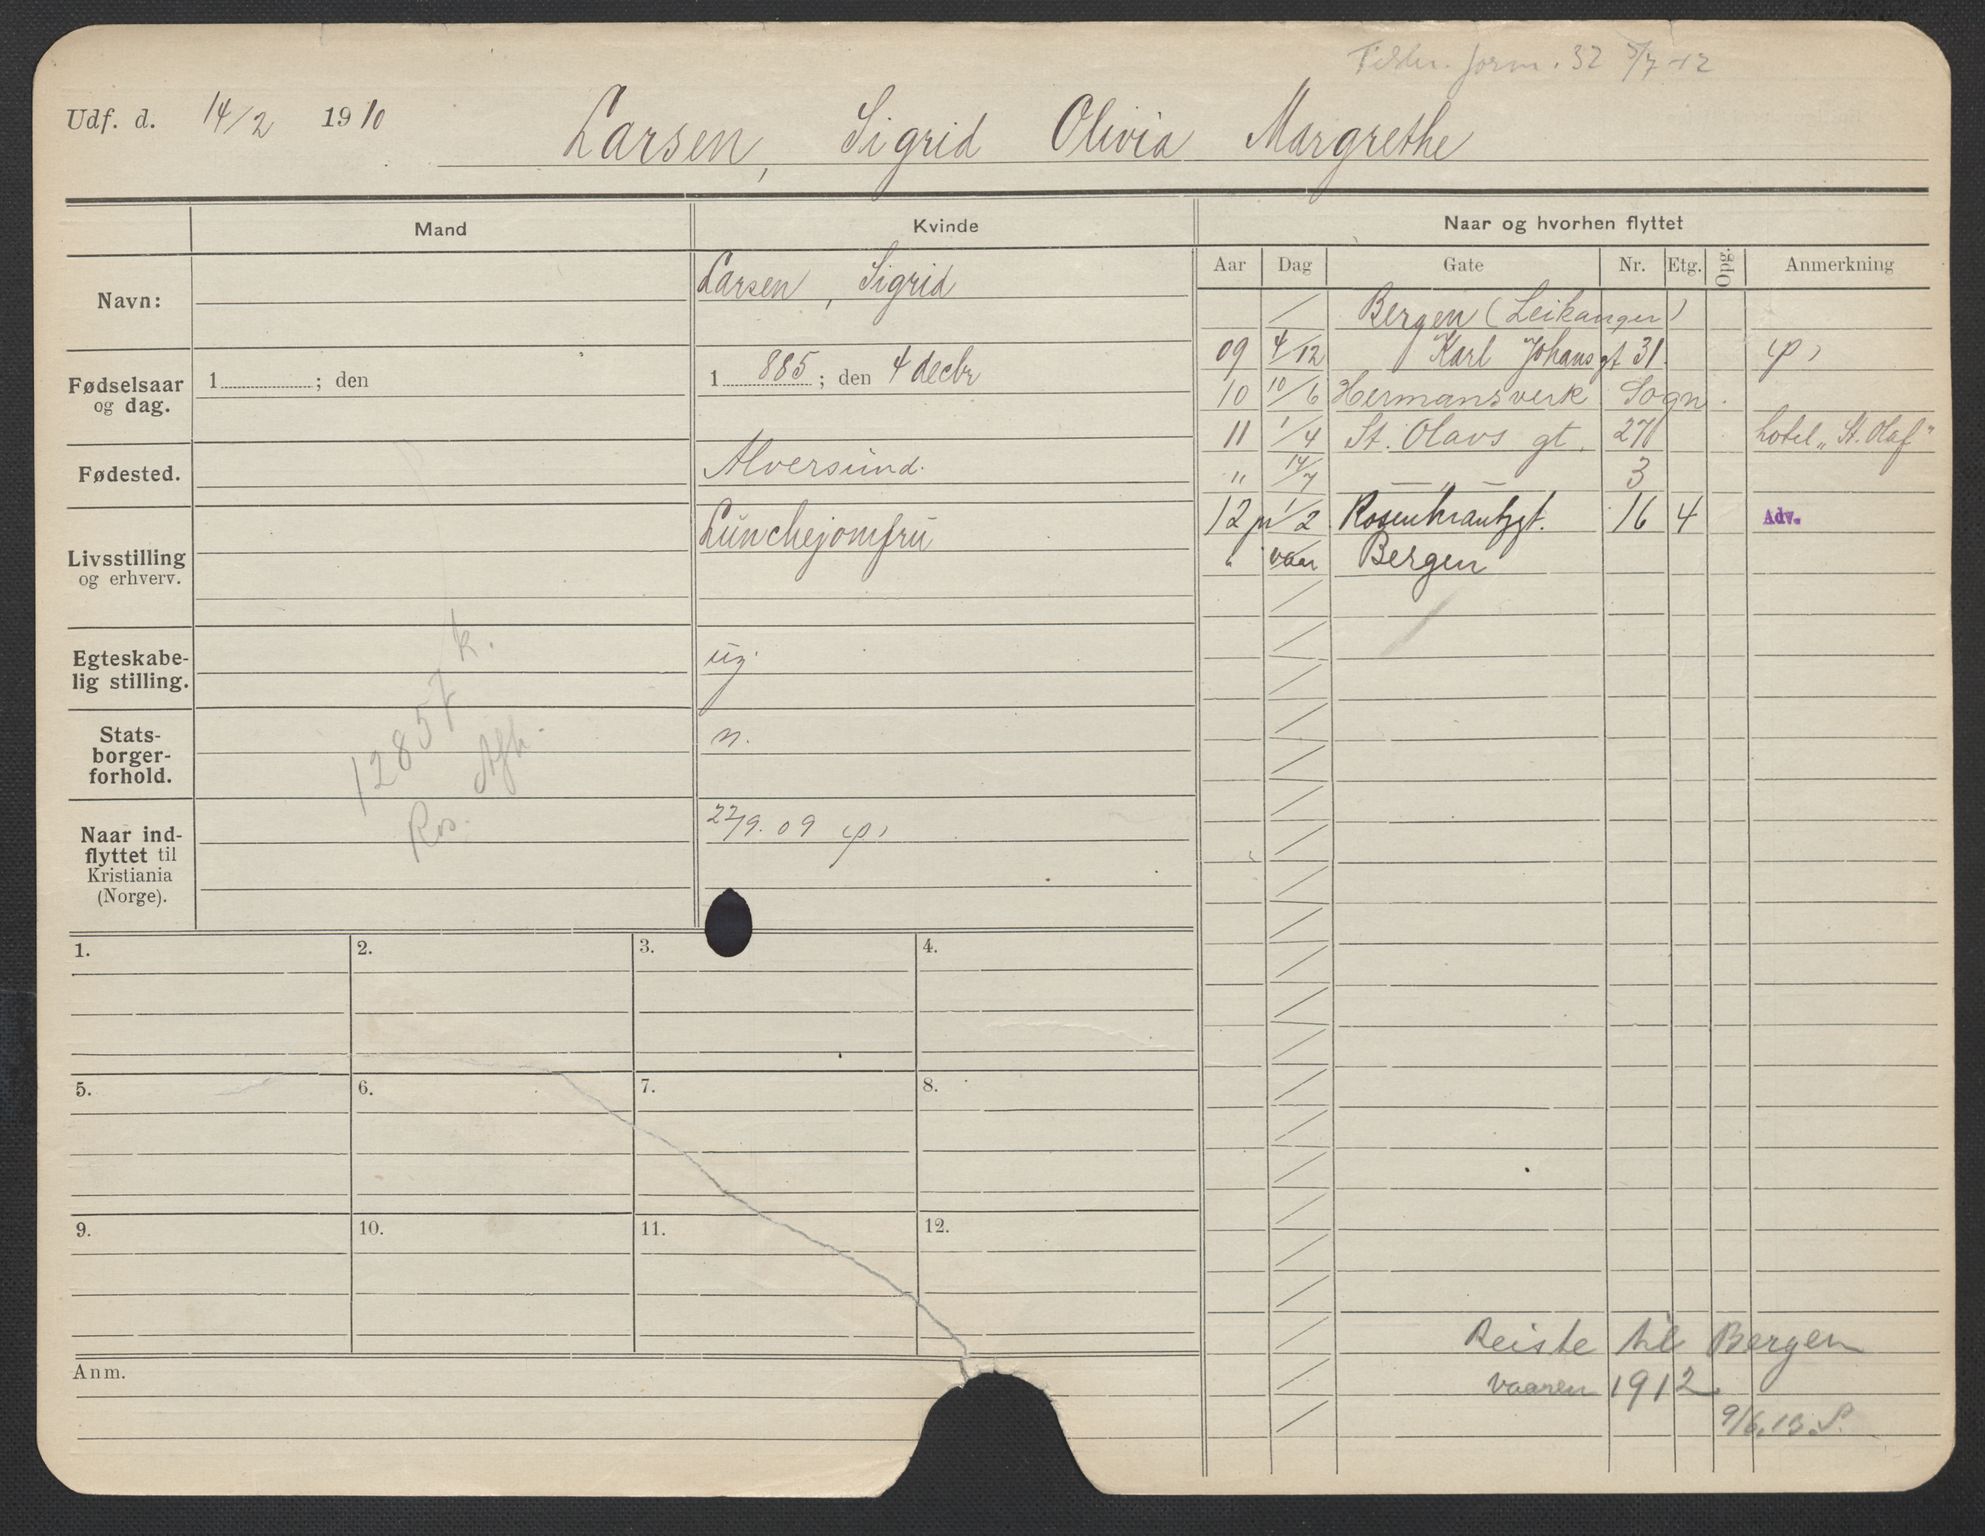 form. 32 5/7-12
Udf. d. 14/2 1910 Larsen, Sigrid Olivia Margrethe
Mand Kvinde Naar og hvorhen flyttet
Aar Dag Gate Nr. Etg. Opg. Anmerkning
Navn: Larsen, Sigrid
Bergen (Leikanger)
09 4/12 Karl Johansgt 31. (p)
Fødselsaar og dag. 1 ; den 1 885 ; den 4 decbr
10 10/6 Hermansverk Sogn.
11 1/4 St. Olavs gt. 27 hotel „St. Olaf"
Fødested. Alversund.
„ 14/7 — „ — 3
Livsstilling og erhverv. Lunchejomfru
12 pr 1/2 Rosenkrantzgt. 16 4 Adv.
" vaar Bergen
Egteskabe-
lig stilling. ug.
12857 k.
Ros. Afh.
Stats-
borger-
forhold. n.
Naar ind-
flyttet til
Kristiania
(Norge). 22/9. 09 (p)
1. 2. 3. 4.
5. 6. 7. 8.
9. 10. 11. 12.
Reiste til Bergen
vaaren 1912.
9/6.13. S.
Anm.